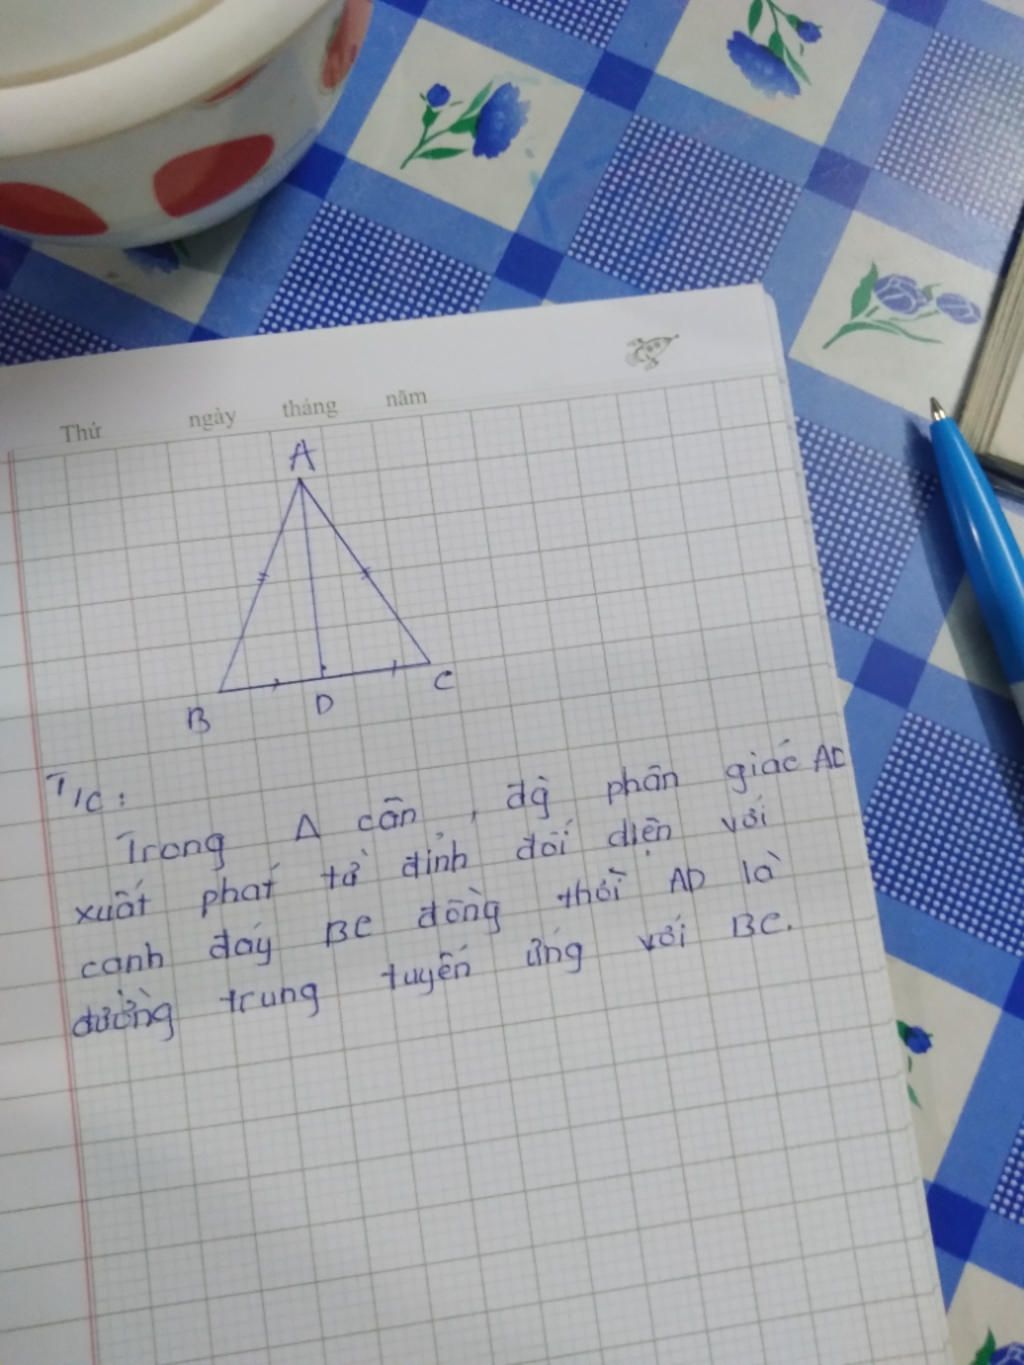 Thứ ngày tháng năm
A
B D C
T/C:
Trong Δ cân, đg phân giác AD
xuất phát từ đỉnh đối diện với
cạnh đáy BC đồng thời AD là
đường trung tuyến ứng với BC.